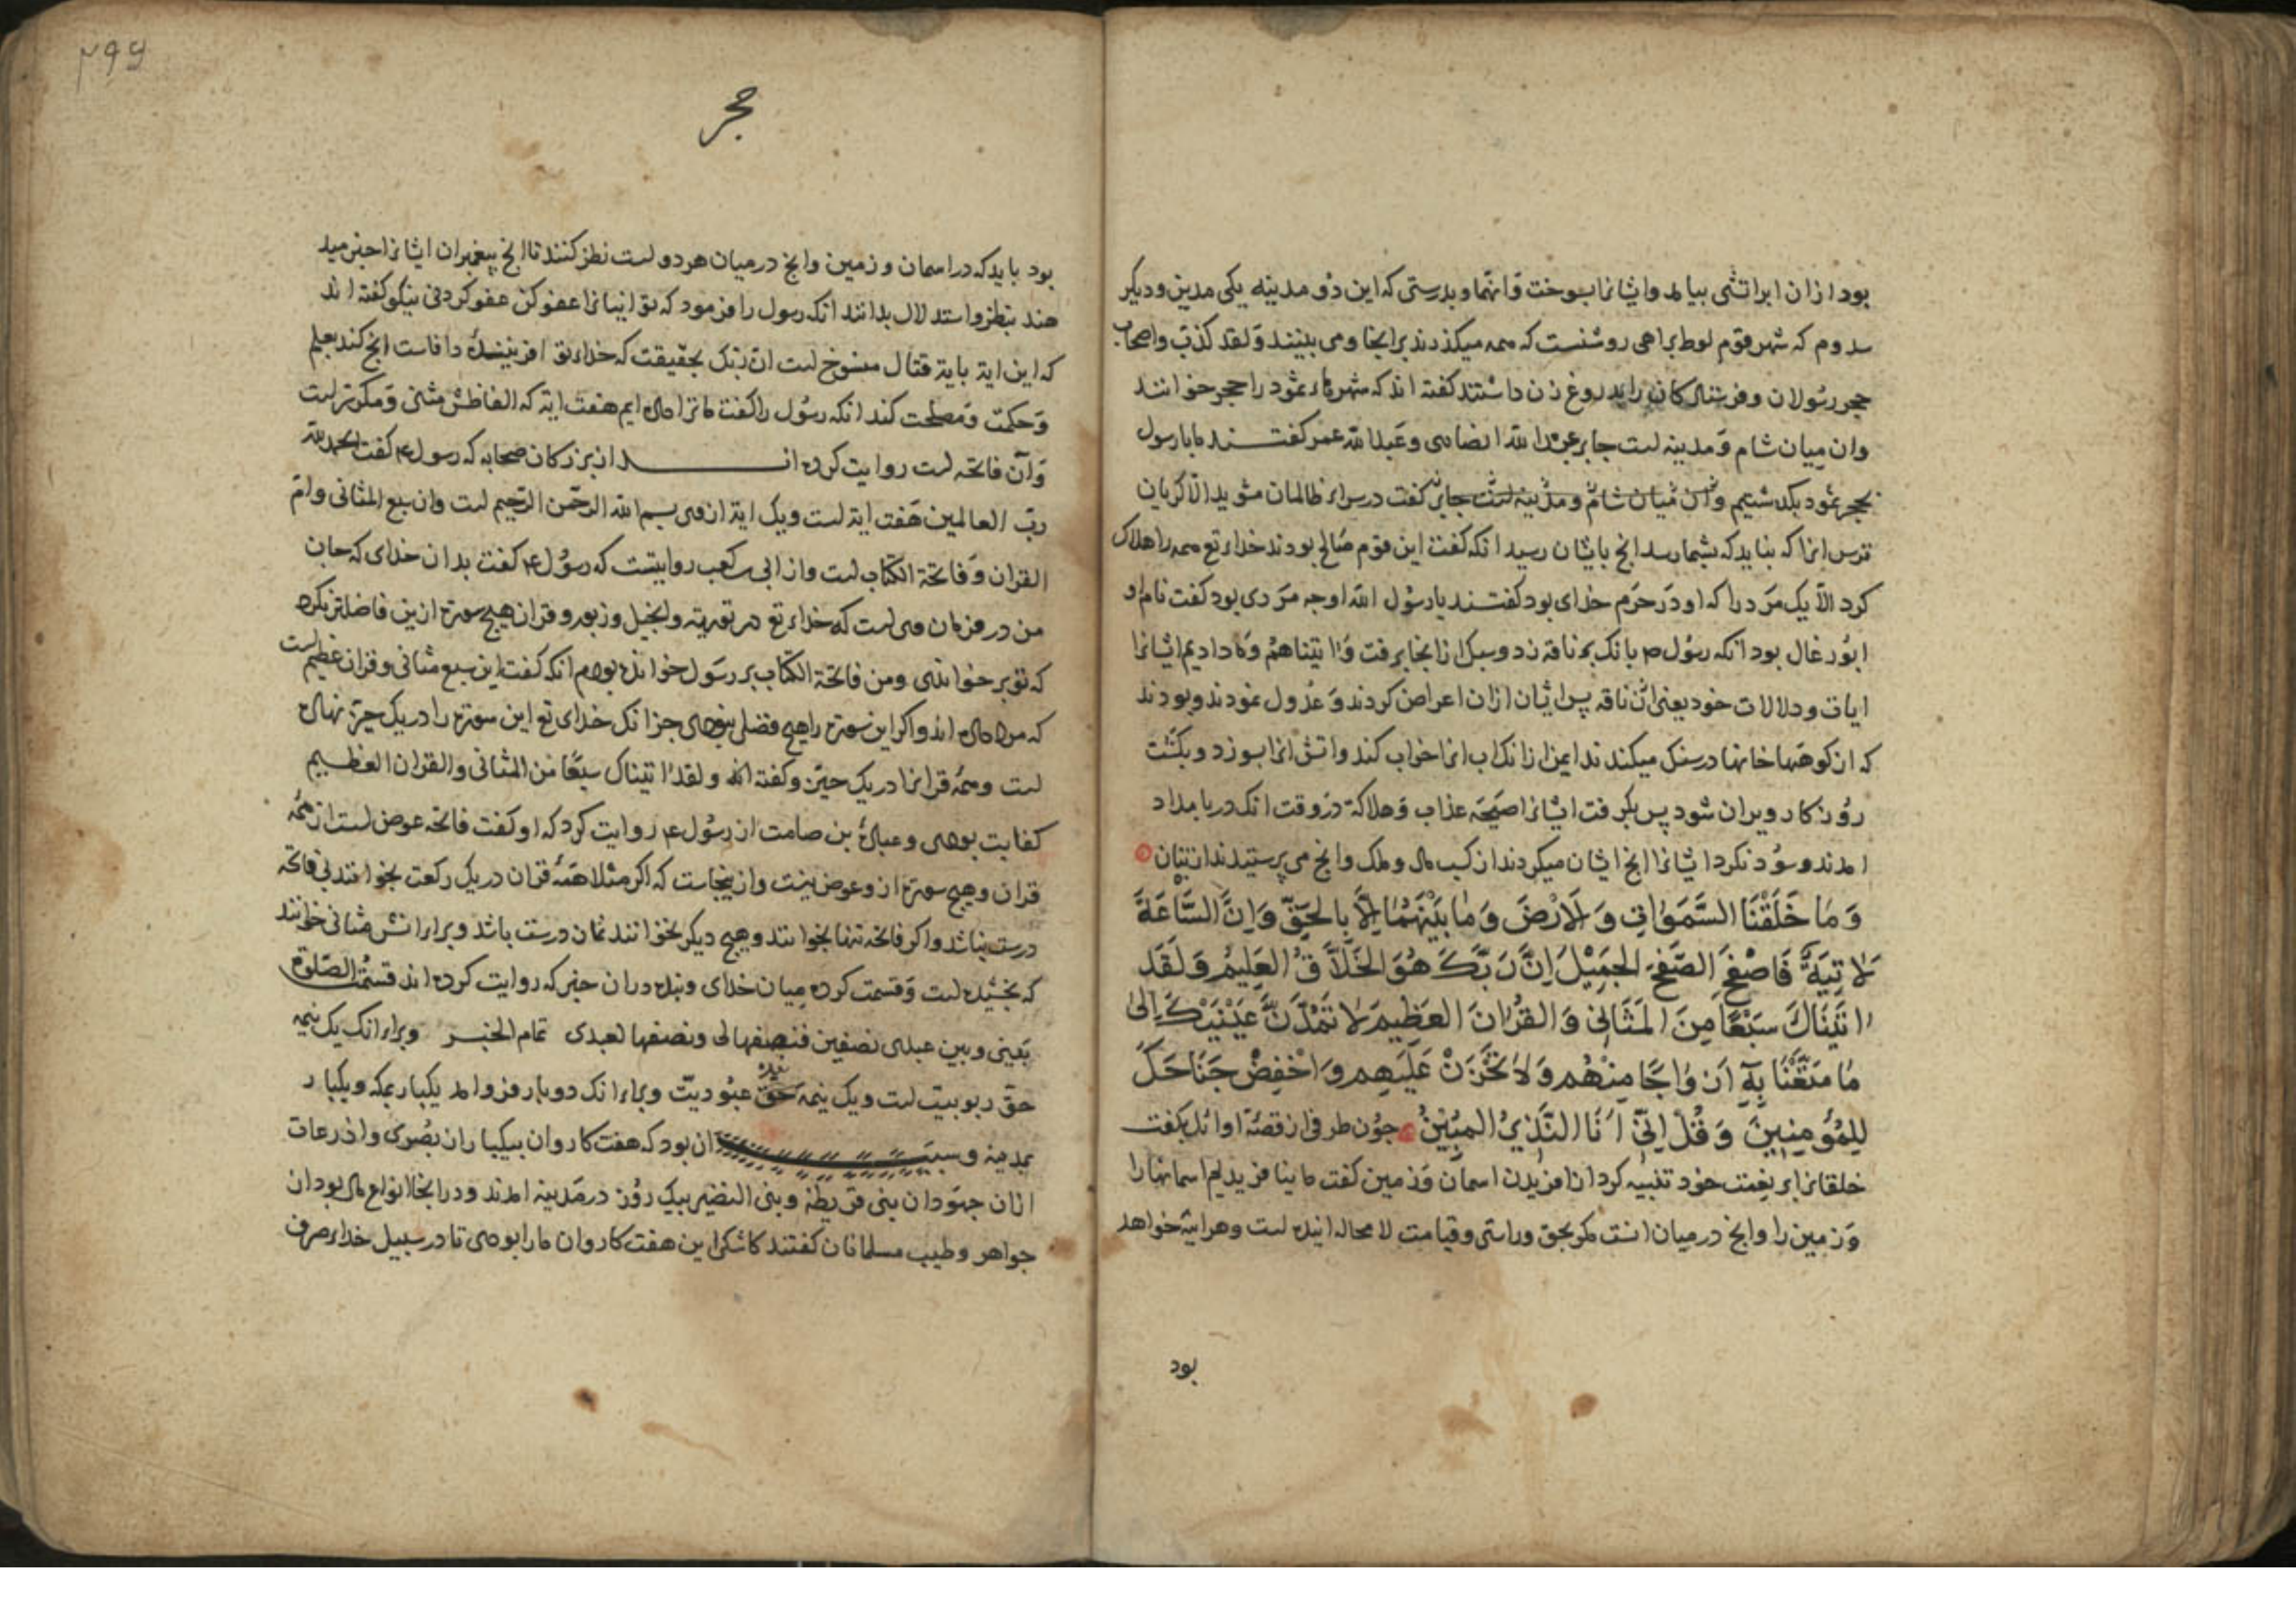 بود ازان ابر اتشی بیامد و ایشانرا بسوخت وَانهما و بدرستی که این دو مدینه یکی مدین و دیگر
سدوم که شهر قوم لوط براهی روشنست که همه میکذرند برانجا و می بینند وَلقد کذّب واصحاب
حجر رسُولان و فرستادکان را بدروغ زن داشتند کفته اند که شهرهاء ثمود را حجر خوانند
وان میان شام وَ مدینه است جابر عبدالله انصاری و عَبدالله عمر کفتند مابا رسول
بحجر ثمود بکذشتیم وان میان شام و مدینه است جابر کفت در سراء ظالمان مشوید الّا کریان
ترس انرا که نباید که بشما رسد انچ بایشان رسید انکه کفت این قوم صٰالح بودند خداء تع همه را هلاک
کرد الّا یک مَرد را که او دَر حَرَم خدای بود کفتند یا رسُول الله او چه مَردی بود کفت نام او
ابُو رغال بود انکه رسُول ص بانک بر ناقه زد و سبک ازانجا برفت وَاٰتیناهُم وَما دادیم ایشانرا
ایات و دلالات خود یعنی ان ناقه پس ایشان ازان اعراض کردند وَ عدُول نمودند و بودند
که از کوهها خانها در سنک میکندند ایمن ازانک اب انرا خراب کند و اتش انرا بسوزد و بکشت
روُزکار ویران شود پس بکرفت ایشانرا صَیحَه عذاب وَ هلاکة در وقت انک در بامداد
امدند و سوُد نکرد ایشانرا انچ ایشان میکردند از کسب مال و ملک و انچ می پرستیدند از بتان
وَمٰا خَلَقْنَا السَّمَوٰاتِ وَالاَرْضَ وَمٰا بَیْنَهُمٰا اِلاّٰ بِالحَقِّ وَاِنَّ السّٰاعَةَ
لَاٰتِیَةٌ فَاصْفَحِ الصَّفْحَ الجَمِیْلَ اِنَّ رَبَّکَ هُوَ الخَلاّٰقُ العَلِیْمُ وَلَقَد
اٰتَیْنَاکَ سَبْعًا مِنَ المَثَانِی وَالقُرْاٰنَ العَظِیمَ لاٰ تَمُدَّنَّ عَیْنَیْکَ اِلیٰ
مٰا مَتَّعْنٰا بِهٖ اَزْوٰاجًا مِنْهُم وَلاٰ تَحْزَنْ عَلَیْهِم وَاخْفِضْ جَنَاحَکَ
لِلمُؤْمِنِینَ وَقُلْ اِنّیٖ اَنَا النَّذِیْرُ المبِیْنُ جوُن طرفی از قصّهٔ اوائل بکفت
خلقانرا بر نعمت خود تنبیه کرد از افریدن اسمان وَزمین کفت ما بنافریدیم اسمانها را
وَزمین را و انچ در میان انست مکر بحق و راستی و قیامت لا محاله اینده است و هراینه خواهد
بود
۲۹۹
حجر
بود باید که در اسمان و زمین و انچ در میان هر دو است نظر کنند تا انچ پیغمبران ایشانرا خبر مید
هند بنظر و استدلال بدانند انکه رسول را فرمود که تو انیانرا عفو کن عفو کردنی نیکو کفته اند
که این ایة بایة قتال منسوخ است انّ ربّک بحقیقت که خداء تو افریننده دانا ست انچ کند بعلم
وَ حکمت وَ مصلحت کند انکه رسُول را کفت ما ترا داده ایم هفت ایة که الفاظش مثنی وَ مکرّرست
وَ آن فاتحه است روایت کرده اند از بزرکان صحابه که رسول ع کفت الحمد لله
ربّ العالمین هَفت ایة است و یک ایة ازوی بسم الله الرحمن الرّحیم است وان سبع المثانی و امّ
القران وَ فاتحة الکتاب است و از ابی کعب روایتست که رسُول ع کفت بدان خدای که جان
من در فرمان وی است که خداء تع در توریة و انجیل و زبور و قران هیچ سورة ازین فاضلتر نکرد
که تو بر خواندی و من فاتحة الکتاب بر رسَول خوانده بودم انکه کفت این سبع مثانی و قران عظیم است
که مرا داده اند و اکر این سورة را هیچ فضلی نبودی جز انک خدای تع این سورة را در یک حیّز نهاده
است و همهٔ قرانرا در یک حیّز و کفته الله و لقد اٰتیناک سبعًا من المثانی والقران العظیم
کفایت بودی و عبادهٔ بن صامت از رسُول ع روایت کرد که او کفت فاتحه عوض است از همهٔ
قران و هیچ سورة ازو عوض نیست و ازینجاست که اکر مثلا همهٔ قران در یک رکعت بخوانند بی فاتحه
درست نباشد و اکر فاتحه تنها بخوانند و هیچ دیکر نخوانند نمان درست باشد و براء انش مثانی خوانند
که بخشیده است وَ قسمت کرده میان خدای و بنده دران خبر که روایت کرده اند قسمتُ الصّلوة
بَینی و بین عبدی نصفین فنصفها لی و نصفها لعبدی تمام الخبر و براء انک یک نیمه
حق ربوبیت است و یک نیمه حَق عبُودیّت و براء انک دو بار فرو امد یکبار بمکه و یکبار
بمدینه و سبب ان بود که هفت کاروان بیکبار از بُصری و اذرعات
ازان جهوَدان بنی قریظه و بنی النضیر بیک روُز در مَدینه امدند و درانجا انواع مال بود از
جواهر و طیب مسلمانان کفتند کاشکی این هفت کاروان مارا بودی تا در سبیل خداء صرف